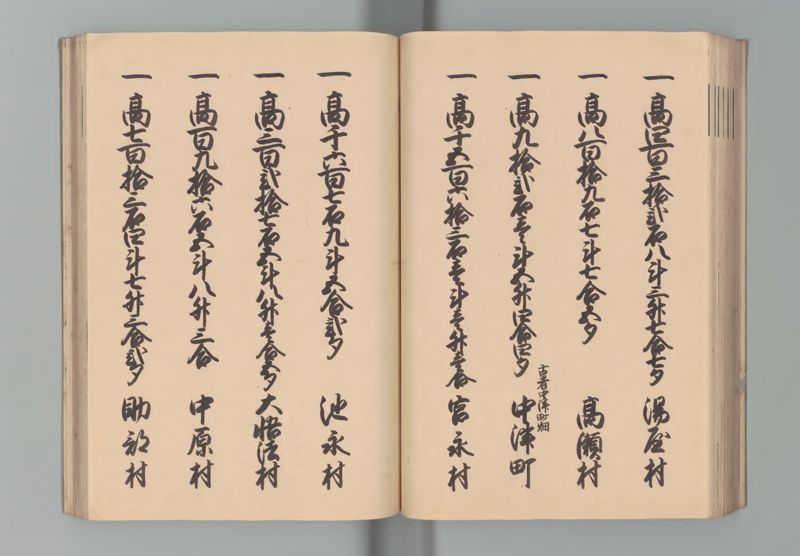 一高四百三拾弐石八斗三升七合七夕 湯屋村
一高八百拾九石七斗七合五夕 高瀬村
一高九拾弐石壱斗五升四合四夕 古者中津町畑 中津町
一高千五百六拾三石壱斗壱升壱合 宮永村
一高千六百七石九斗五合弐夕 池永村
一高三百弐拾七石五斗八升壱合五夕 大悟法村
一高百九拾六石五斗八升三合 中原村
一高七百拾三石四斗七升三合弐夕 助部村